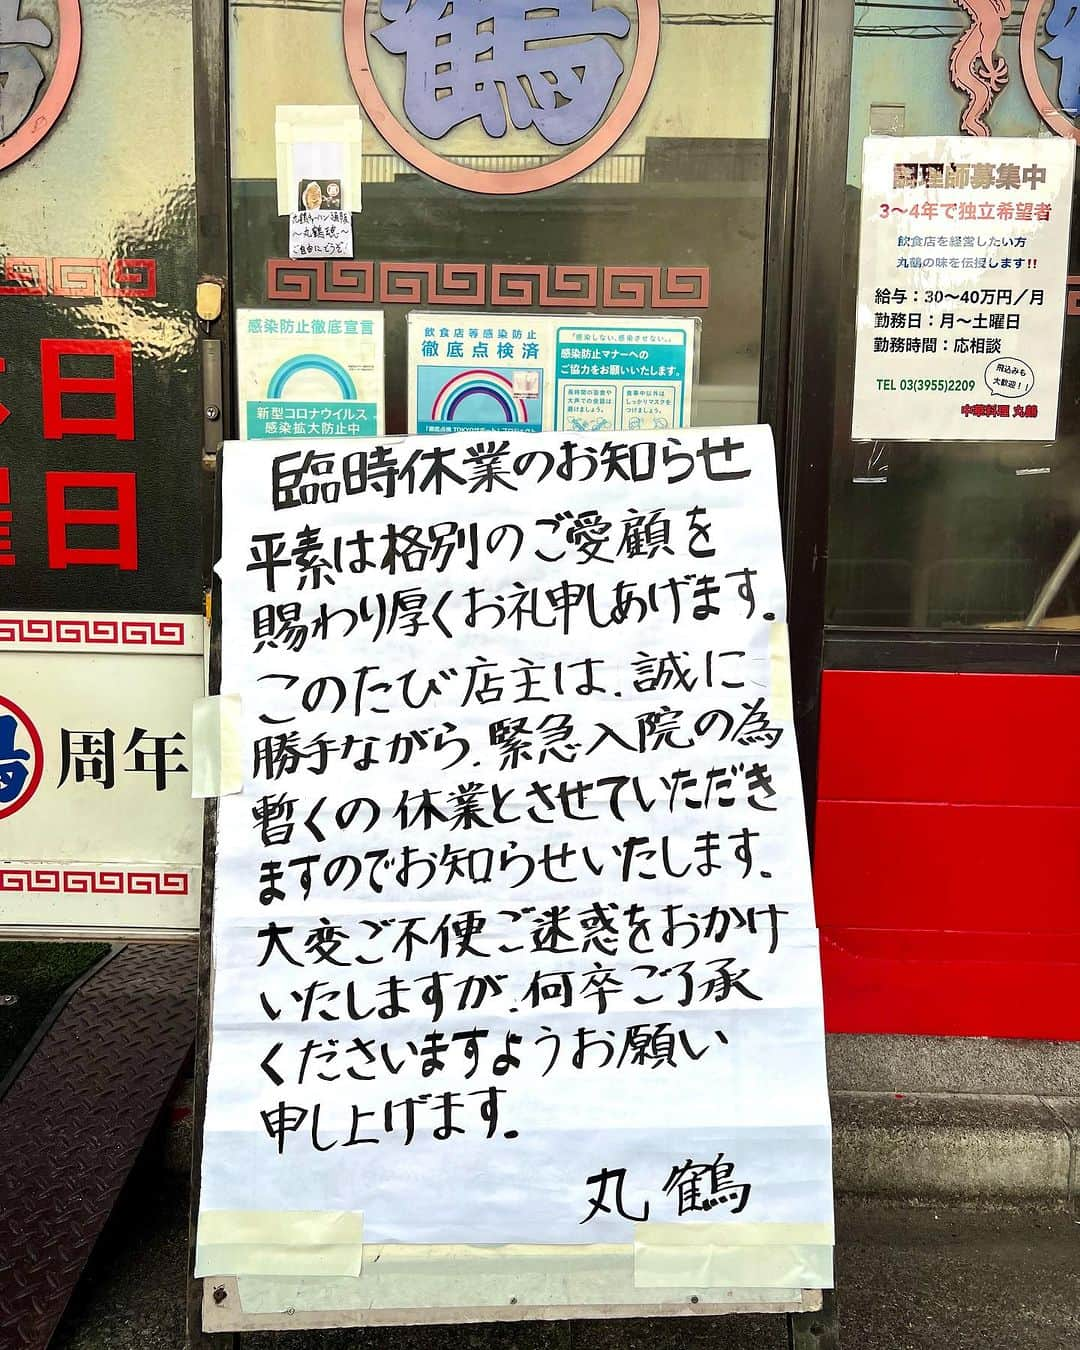 鶴
丸鶴チャーハン通販
〜丸鶴魂〜
ご自由にどうぞ!
調理師募集中
3〜4年で独立希望者
飲食店を経営したい方
丸鶴の味を伝授します!!
給与:30〜40万円/月
勤務日:月〜土曜日
勤務時間:応相談
飛込みも
大歓迎!!
TEL 03(3955)2209
中華料理 丸鶴
感染防止徹底宣言
新型コロナウイルス
感染拡大防止中
飲食店等感染防止
徹底点検済
「感染しない、感染させない。」
感染防止マナーへの
ご協力をお願いいたします。
長時間の飲食や
大声での会話は
避けましょう。
食事中以外は
しっかりマスクを
つけましょう。
日
曜日
周年
臨時休業のお知らせ
平素は格別のご愛顧を
賜わり厚くお礼申しあげます。
このたび店主は、誠に
勝手ながら、緊急入院の為
暫くの休業とさせていただき
ますのでお知らせいたします。
大変ご不便ご迷惑をおかけ
いたしますが、何卒ご了承
くださいますようお願い
申し上げます。
丸鶴